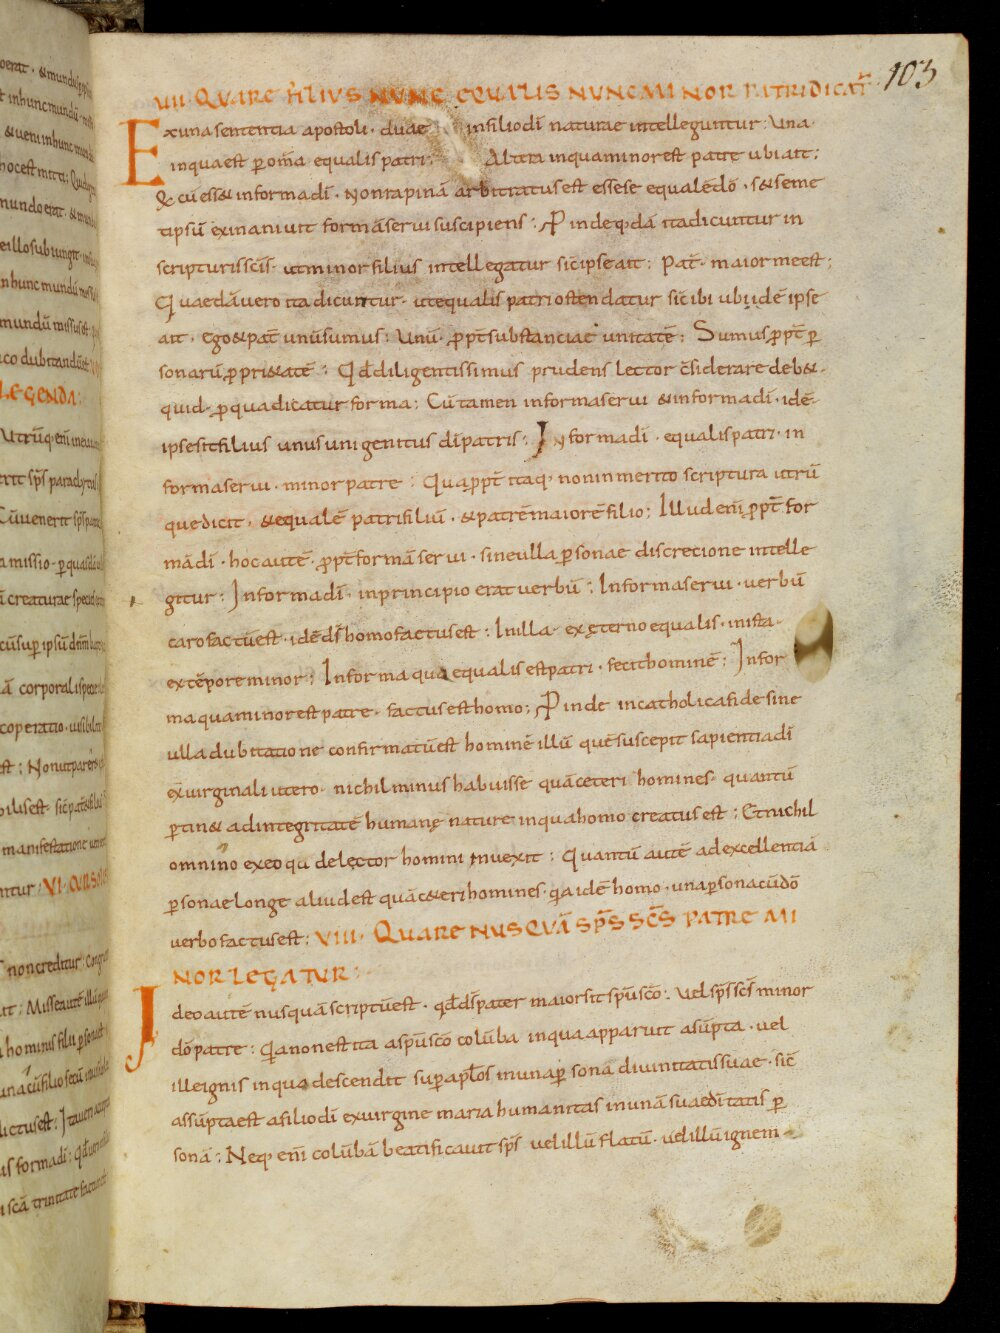 103
VII· QUARE FILIUS NUNC EQUALIS NUNC MINOR PATRI DICAT̄
Ex una sententia apostoli· duae in filio dī naturae intelleguntur· Una·
in qua est p̄ om̄a equalis patri; Altera in qua minor est patre ubi ait;
Q cū ess& in forma dī· non rapinā arbitratus est esse se equalē dō· s& seme
tipsū exinaniuit formā serui suscipiens; P̄inde q·dā ita dicuntur in
scripturis sc̄is· ut minor filius intellegatur sic̄ ipse ait; Pat̄· maior me est;
Quaedā uero ita dicuntur· ut equalis patri ostendatur sic̄ ibi ubi idē ipse
ait· ego & pat̄ unū sumus; Unū· p̄pt̄ substanciae unitatē; Sumus p̄pt̄ p̄
sonarū p̄pri&atē; Qd̄ diligentissimus prudens lector c̄siderare deb&·
quid· p̄ qua dicatur forma; Cū tamen in forma serui & in forma dī· idē·
ipse sit filius unus unigenitus dī patris; In forma dī· equalis patri· in
forma serui· minor patre; Quap̄pt̄ itaq· non inmerito scriptura utrū
que dicit· & equalē patri filiū· & patrē maiorē filio; Illud enī p̄pt̄ for
mā dī· hoc autē· p̄pt̄ formā serui· sine ulla p̄sonae discrecione intelle
gitur; In forma dī· in principio erat uerbū; In forma serui· uerbū
caro factū est· idē d̄s homo factus est; In illa· ex ęterno equalis· in ista·
ex tēpore minor; In forma qua equalis est patri· fecit hominē; In for
ma qua minor est patre· factus est homo; P̄inde in catholica fide sine
ulla dubitatione confirmatū est hominē illū quē suscepit sapientia dī
ex uirginali utero· nichil minus habuisse quā ceteri homines· quantū
p̄tin& ad integritatē humanę nature in qua homo creatus est; Et nichil
omnino ex eo qđ delector homini inuexit; Quantū autē ad excellentiā
p̄sonae longe aliud est quā c&eri homines· q̄a idē homo· una p̄sona cū dō
uerbo factus est; VIII· QUARE NUSQUĀ SP̄S SC̄S PATRE MI
NOR LEGATUR;
Ideo autē nusquā scriptū est· qd̄ d̄s pater maior sit sp̄u sc̄o; Uel sp̄s sc̄s minor
dō patre; Q̄a non est ita a sp̄u sc̄o colūba in qua apparuit asūpta· uel
ille ignis in quo descendit sup̄ ap̄los in una p̄sona diuinitatis suae· sic̄
assūpta est a filio dī ex uirgine maria humanitas in unā suae dītatis p̄
sonā; Neq· enī colūbā beatificauit sp̄s uel illū flatū· uel illū ignem